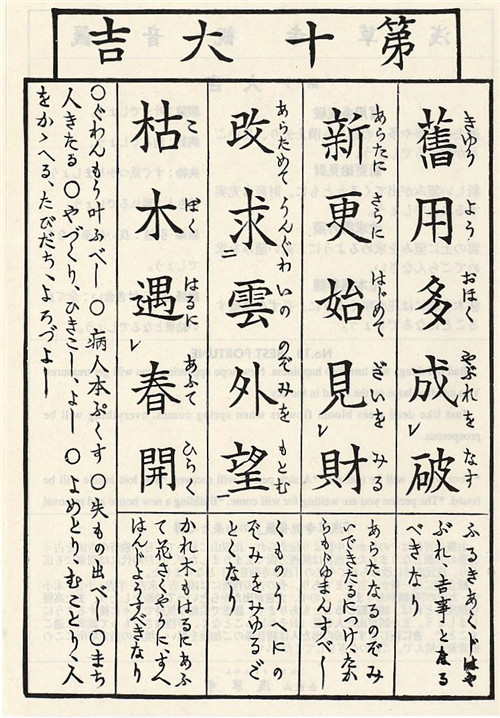 第十大吉
舊用多成破
きゆり よう おほく やぶれを なす
ふるきあくじはや
ぶれ、吉事と成る
べきなり
新更始見財
あらたに さらに はじめて ざいを みる
あらたなるのぞみ
いできたるに、たか
らもじゆまんすべし
改求雲外望
あらためて うんぐわいの のぞみを もとむ
ぞみをみゆるご
とくなり
枯木遇春開
こ ぼく はるに あふて ひらく
かれ木もはるにあふ
て花さくやうに、すへ
はんじよふすべきなり
〇ぐわんもう叶ふべし 〇病人本ぷくす 〇失もの出べし 〇まち
人きたる 〇やづくり、ひきこし、よし 〇よめとり、むことり、人
をかゝへる、たびだち、よろづよし